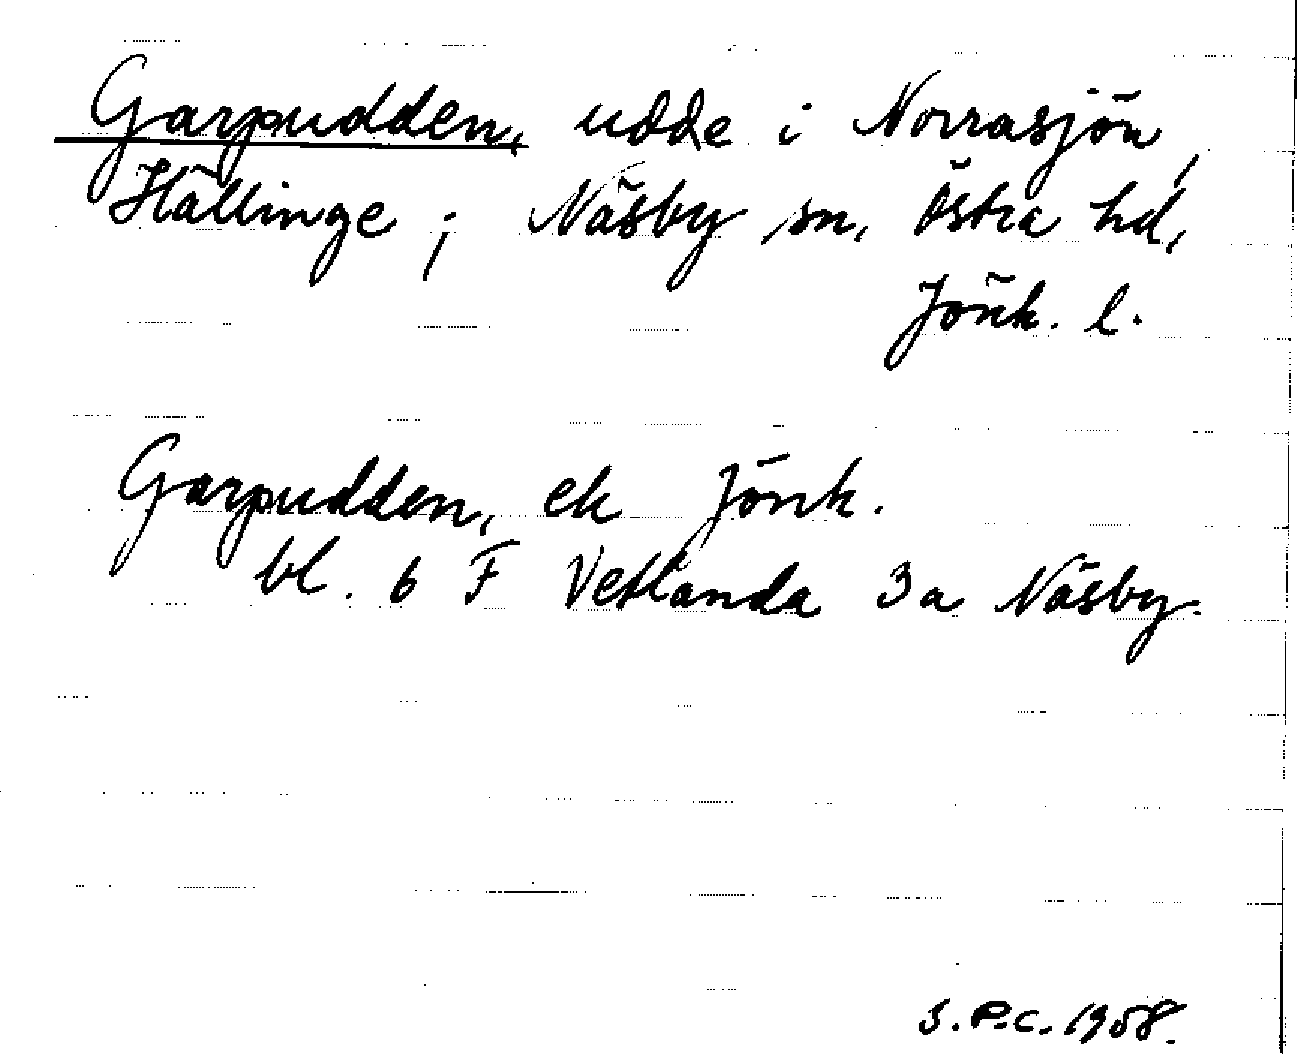 Garpudden, udde i Norrasjön,
Hällinge; Näsby sn, Östra hd,
Jönk. l.
Garpudden, ek Jönk.
bl. 6 F Vetlanda 3a Näsby.
S.P.C. 1958.